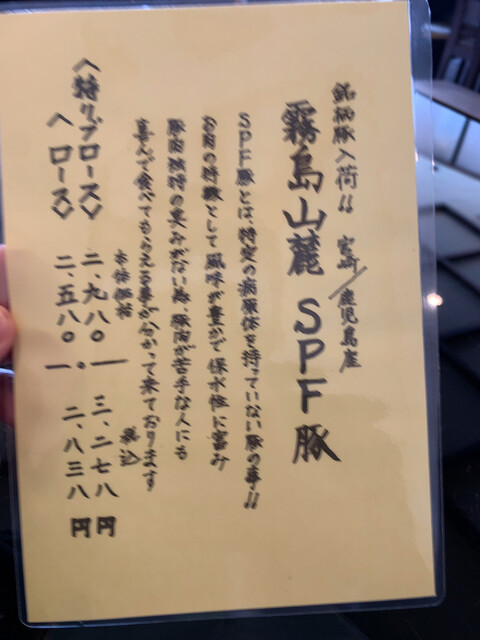 銘柄豚入荷!! 宮崎/鹿児島産
霧島山麓 SPF豚
SPF豚とは、特定の病原体を持っていない豚の事!!
お肉の特徴として風味が豊かで保水性に富み
豚肉独特の臭みがない為、豚肉が苦手な人にも
喜んで食べてもらえる事が分かって来ております
本体価格 税込
〈特リブロース〉 二、九八〇 ー 三、二七八円
〈ロース〉 二、五八〇 ー 二、八三八円